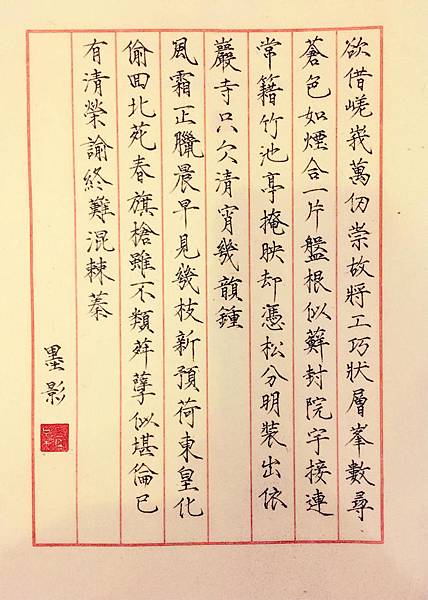 欲借嵯峩萬仞崇故將工巧狀層峯數尋
蒼色如煙合一片盤根似蘚封院宇接連
常籍竹池亭掩映却憑松分明裝出依
巖寺只欠清宵幾韻鍾
風霜正臘晨早見幾枝新預荷東皇化
偷回北苑春旗槍雖不類荈孽似堪倫已
有清榮諭終難混棘蓁
墨影